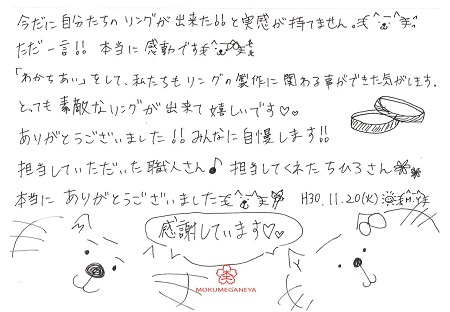 今だに自分たちのリングが出来た!!と実感が持てません。
ただ一言!! 本当に感動です
「わかちあい」をして、私たちもリングの製作に関わる事ができた気がします。
とっても素敵なリングが出来て嬉しいです♡♡
ありがとうございました!! みんなに自慢します!!
担当していただいた職人さん♪ 担当してくれたちひろさん
本当にありがとうございました H30.11.20(火)
感謝しています♡♡
MOKUMEGANEYA